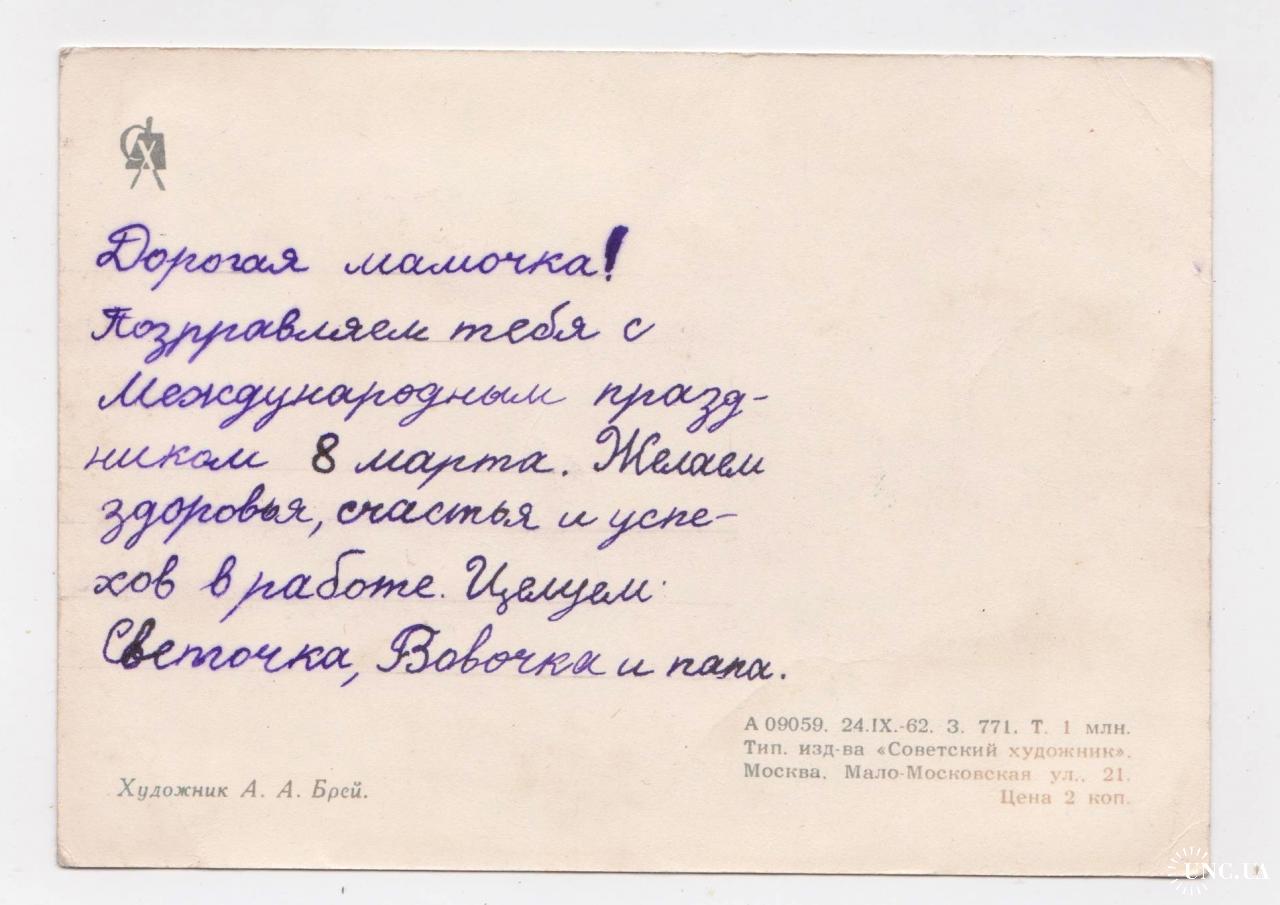 СХ
Дорогая мамочка!
Позрравляем тебя с
Международным празд-
ником 8 марта. Желаем
здоровья, счастья и успе-
хов в работе. Целуем
Светочка, Вовочка и папа.
А 09059. 24.IX.-62. З. 771. Т. 1 млн.
Тип. изд-ва «Советский художник».
Москва, Мало-Московская ул., 21.
Цена 2 коп.
Художник А. А. Брей.
UNC.UA